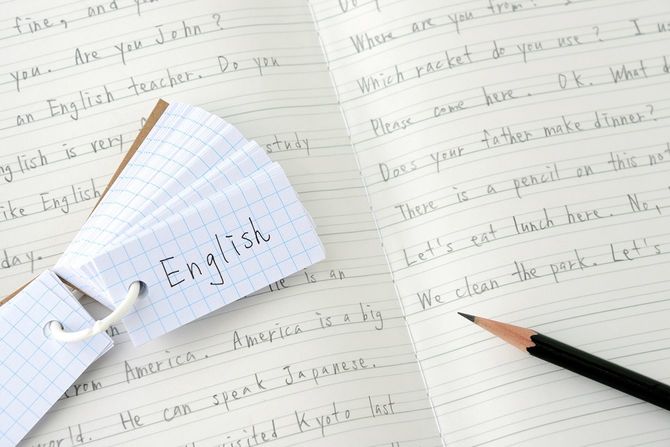 fine, and you
you. Are you John?
an English teacher. Do you
English is very
study
like English
day.
is an
from America. America is a big
world. He can speak Japanese.
visited Kyoto last
English
Where are you from?
Which racket do you use? I
Please come here. OK. What
Does your father make dinner?
There is a pencil on this
Let's eat lunch here. No,
We clean the park. Let's